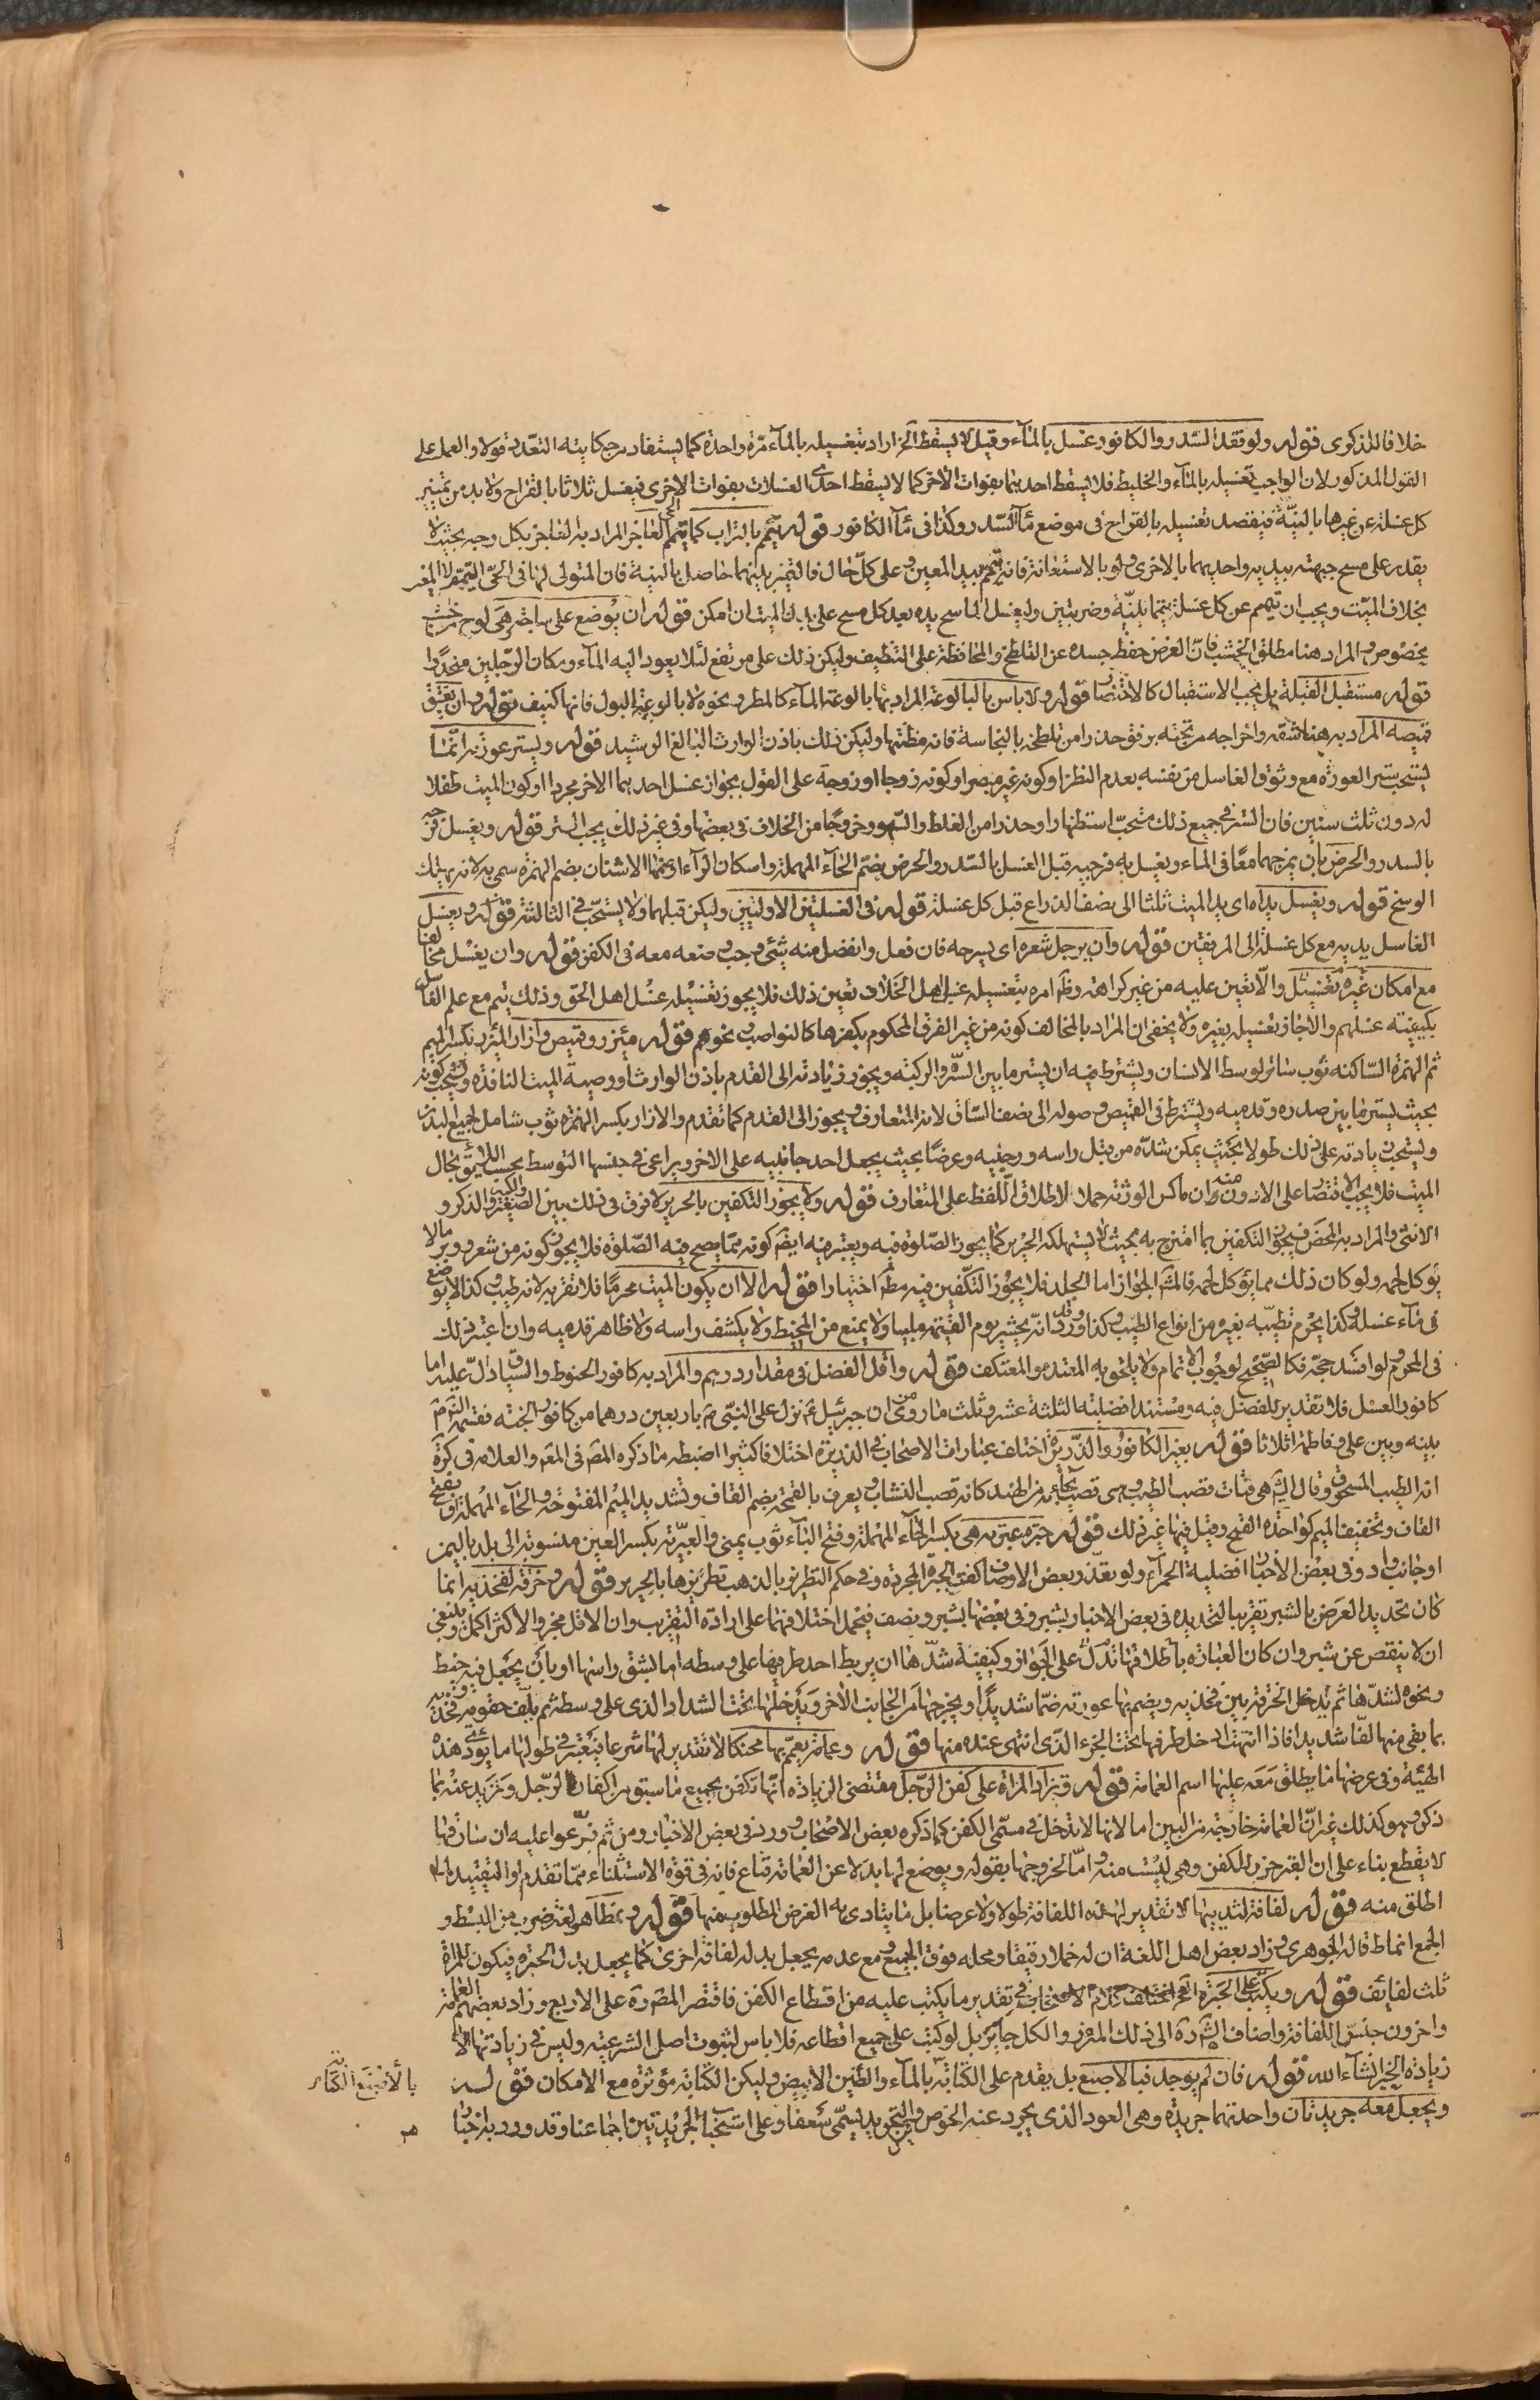 خلافا للذكرى قوله ولو فقد السدر والكافور غسل بالمآء وقيل لا يسقط الخ اراد بتغسيله بالمآء مرّة واحدة كما يستفاد من حكايته التعدد قولا والعمل على
القول المذكور لان الواجب تغسيله بالمآء والخليط فلا يسقط احدهما بفوات الاخر كما لا يسقط احدى الغسلات بفوات الاخرى فيغسل ثلاثا بالقراح ولا بد من تمييز
كل غسلة عن غيرها بالنيّة فيقصد تغسيله بالقراح فى موضع مآء السّدر وكذا فى مآء الكافور قوله يتيمّم بالتراب كما يتيمّم الحى العاجز المراد به العاجز بكل وجه بحيث لا
يقدر على مسح جبهته بيديه واحديهما بالاخرى ولو بالاستعانة فانه تيمم بيد المعين وعلى كلّ حال فالتميز بينهما حاصل بالنية فان المتولى لها فى الحىّ المتيمّم لا الميمم
بخلاف الميّت ويجب ان تيمم عن كل غسلة تيمما بنيّة وضربتين وليغسل الماسح يده بعد كل مسح على بدن الميت ان امكن قوله ان يوضع على ساجة هى لوح خشب
مخصوص والمراد هنا مطلق الخشب فانّ الغرض حفظ جسده عن التلطخ والمحافظة على التنظيف وليكن ذلك على مرتفع لئلا يعود اليه المآء ومكان الرّجلين منحدرا
قوله مستقبل القبلة بل يجب الاستقبال كالاحتضار قوله ولا باس بالبالوعة المراد بها بالوعة المآء كالمطر ونحوه لا بالوعة البول فانها كنيف قوله وان يفتق
قميصه المراد به هنا شقه واخراجه من تحته برفق حذرا من تلطخه بالنجاسة فانه مظنتها وليكن ذلك باذن الوارث البالغ الرشيد قوله ويستر عورته انما
يستحب ستر العورة مع وثوق الغاسل من نفسه بعدم النظر او كونه غير مبصر او كونه زوجا او زوجة على القول بجواز غسل احدهما الاخر مجردا او كون الميت طفلا
له دون ثلث سنين فان الستر فى جميع ذلك مستحبّ استظهارا وحذرا من الغلط والسّهو وخروجًا من الخلاف فى بعضها وفى غير ذلك يجب الستر قوله ويغسل فرجه
بالسدر والحرض بان يمزجهما معًا فى الماء ويغسل به فرجيه قبل الغسل بالسّدر والحرض بضمّ الحآء المهملة واسكان الرآء او ضمّها الاشنان بضم الهمزة سمى به لانه يهلك
الوسخ قوله ويغسل يداه اى يد الميت ثلثا الى نصف الذراع قبل كل غسلة قوله فى الغسلتين الاوليين وليكن قبلهما ولا يستحبّ فى الثالثة قوله ويغسل
الغاسل يديه مع كل غسلة الى المرفقين قوله وان يرجل شعره اى يسرحه فان فعل وانفصل منه شئ وجب وضعه معه فى الكفن قوله وان يغسل مخالفا
مع امكان غيره تغسيله والّا تعين عليه من غير كراهة وظ امره بتغسيله غسل اهل الخلاف تعين ذلك فلا يجوز تغسيله غسل اهل الحق وذلك يتم مع علم الغاسل
بكيفيته عندهم والا جاز تغسيله بغيره ولا يخفى ان المراد بالمخالف كونه من غير الفرق المحكوم بكفرها كالنواصب ونحوهم قوله ميئزر وقميص وازار الميئزر بكسر الميم
ثم الهمزة السّاكنة ثوب ساتر لوسط الانسان ويشترط فيه ان يستر ما بين السّرة والركبة ويجوز زيادته الى القدم باذن الوارث او وصية الميت النافذة ويستحب كونه
بحيث يستر ما بين صدره وقدميه ويشترط فى القميص وصوله الى نصف السّاق لانه المتعارف ويجوز الى القدم كما تقدم والازار بكسر الهمزة ثوب شامل لجميع البدن
ويستحب زيادته على ذلك طولا بحيث يمكن شدّه من قبل راسه ورجليه وعرضًا بحيث يجعل احد جانبيه على الاخر ويراعى فى جنسها التوسط بحسب اللايق بحال
الميت فلا يجب الاقتصار على الادون منه وان ماكس الورثة حملا لاطلاق اللّفظ على المتعارف قوله ولا يجوز التكفين بالحرير لا فرق فى ذلك بين الصغير والكبير والذكر و
الانثى والمراد به المحض فيجوز التكفين بما امتزج به بحيث لا يستهلكه الحرير كما يجوز الصّلوة فيه ويعتبر فيه ايضا كونه ممّا يصح فيه الصّلوة فلا يجوز كونه من شعر ووبر ما لا
يؤكل لحمه ولو كان ذلك مما يؤكل لحمه فالمشهور الجواز اما الجلد فلا يجوز التكفين فيه مطلقا اختيارا قوله الا ان يكون الميت محرمًا فلا تقربه لانه طيب وكذا لا يوضع
فى مآء غسله وكذا يحرم تطيّبه بغيره من انواع الطيب وكذا ورد انّه يحشر يوم القيٰمة ملبيا ولا يمنع من المخيط ولا يكشف راسه ولا ظاهر قدميه وان اعتبر ذلك
فى المحرم ولو افسد حجّه فكالصّحيح لوجوب الاتمام ولا يلحق به المعتدة والمعتكف قوله واقل الفضل فى مقدار درهم والمراد به كافور الحنوط والسّياق دلّ عليه اما
كافور الغسل فلا تقدير للفضل فيه ومستند افضلية الثلثة عشر وثلث ما روى من ان جبرئيل ع نزل على النّبى ص باربعين درهما من كافور الجنة فقسمه النبى ص
بينه وبين على وفاطمة اثلاثا قوله بغير الكافور والذّريرة اختلف عبارات الاصحاب فى الذريرة اختلافا كثيرا اضبطه ما ذكره المص فى المعتبر والعلامة فى كرة
انه الطيب المسحوق وقال الشيخ هى فتات قصب الطيب وهى قصب يجآء به من الهند كانه قصب النشاب ويعرف بالقمحة بضم القاف وتشديد الميم المفتوحة والحآء المهملة او بفتح
القاف وتخفيف الميم كواحدة القمح وقيل فيها غير ذلك قوله حبرة عبرية هى بكسر الحآء المهملة وفتح البآء ثوب يمنى والعبريّة بكسر العين منسوبة الى بلد باليمن
او جانب واد وفى بعض الاخبار افضلية الحمرآء ولو تعذر بعض الاوصاف كفت الحبرة المجردة وفى حكم التطريز بالذهب تطريزها بالحرير قوله وخرقة لفخذيه انما
كان تحديد العرض بالشبر تقريبا لتحديده فى بعض الاخبار بشبر وفى بعضها بشبر ونصف فيحمل اختلافهما على ارادة التقريب وان الاقل مجز والاكثر اكمل وينبغى
ان لا ينقص عن شبر وان كان العبارة باطلاقها تدلّ على الجواز وكيفية شدّها ان يربط احد طرفيها على وسطه اما بشق راسها او بان يجعل فيه خيط
ونحوه لشدّها ثم يدخل الخرقة بين فخذيه ويضم بها عورته ضمّا شديدًا ويخرجها من الجانب الاخر ويدخلها تحت الشداد الذى على وسطه ثم يلف حقويه وفخذيه
بما بقى منها لفّا شديدا فاذا انتهت ادخل طرفها تحت الجزء الذى انتهى عنده منها قوله وعمامة يعمّم بها محنكا لا تقدير لها شرعا فيعتبر فى طولها ما يؤدى هذه
الهيئة وفى عرضها ما يطلق معه عليها اسم العمامة قوله ويزاد المراة على كفن الرّجل مقتضى الزيادة انّها تكفن بجميع ما سبق من اكفان الرّجل وتزيد عنه بما
ذكر وهو كذلك غير انّ العمامة خارجة من البين اما لانها لا تدخل فى مسمّى الكفن كما ذكره بعض الاصحاب وورد فى بعض الاخبار ومن ثم فرّعوا عليه ان سارقها
لا يقطع بناء على ان القبر حرز للكفن وهى ليست منه وامّا لخروجها بقوله ويوضع لها بدلا عن العمامة قناع فانه فى قوة الاستثناء ممّا تقدم او التقييد لما
اطلق منه قوله لفافة لثدييها لا تقدير لهذه اللفافة طولا ولا عرضا بل ما يتادى به الغرض المطلوب منها قوله ونمطا هو لغة ضرب من البسط و
الجمع انماط قاله الجوهرى وزاد بعض اهل اللغة ان له خملا رقيقا ومحله فوق الجميع ومع عدمه يجعل بدله لفافة اخرى كما يجعل بدل الحبرة فيكون للمراة
ثلث لفائف قوله ويكتب على الحبرة الخ اختلف كلام الاصحاب فى تقدير ما يكتب عليه من اقطاع الكفن فاقتصر المص ره على الاربع وزاد بعضهم العمامة
واخرون جنسّ اللفافة واضاف الشهيد ره الى ذلك الميزر والكل جايز بل لو كتب على جميع اقطاعه فلا باس لثبوت اصل الشرعية وليس فى زيادتها الّا
زيادة الخير انشآء الله قوله فان لم يوجد فبالاصبع بل يقدم على الكتابة بالمآء والطين الابيض وليكن الكتابة مؤثرة مع الامكان قوله
ويجعل معه جريدتان واحدتهما جريدة وهى العود الذى يجرد عنه الخوص وبدون التجريد يسمّى سعفا وعلى استحباب الجريدتين اجماعنا وقد ورد به اخبار